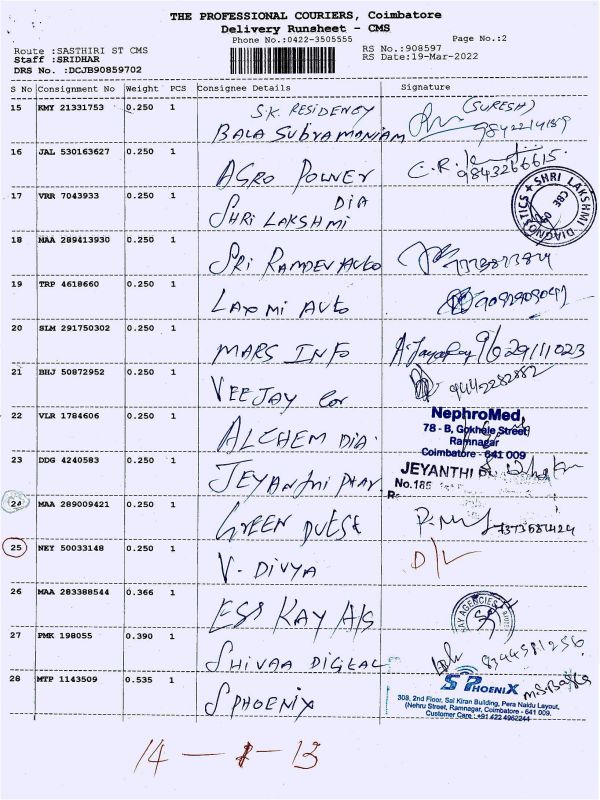 THE PROFESSIONAL COURIERS, Coimbatore
Delivery Runsheet - CMS
Phone No.:0422-3505555
Page No.:2
Route :SASTHIRI ST CMS
RS No.:908597
Staff :SRIDHAR
RS Date:19-Mar-2022
DRS No. :DCJB90859702
S No Consignment No Weight PCS Consignee Details Signature
15 KMY 21331753 0.250 1 S.K. RESIDENCY (SURESH)
BALA SUBRAMANIAM 9842214189
16 JAL 530163627 0.250 1 AGRO POWER C.R. 9843266615.
17 VRR 7043933 0.250 1 SHRI LAKSHMI DIA SHRI LAKSHMI DIAGNOSTICS CBE
18 MAA 289413930 0.250 1 SRI RAMDEV AUTO
19 TRP 4618660 0.250 1 LAXMI AUTO
20 SLM 291750302 0.250 1 MARS INFO A. Jayaraj 9629111023
21 BHJ 50872952 0.250 1 VEEJAY Cor 9442282882
22 VLR 1784606 0.250 1 ALCHEM DIA. NephroMed,
78 - B, Gokhale Street
Ramnagar
Coimbatore - 641 009
23 DDG 4240583 0.250 1 JEYANTHI PHAR JEYANTHI
No.186
24 MAA 289009421 0.250 1 GREEN DUESE 7373681424
25 NEY 50033148 0.250 1 V. DIVYA D/L
26 MAA 283388544 0.366 1 ESS KAY A/S KAY AGENCIES
27 PMK 198055 0.390 1 SHIVAA DIGITAL 8344581256
28 MTP 1143509 0.535 1 SPHOENIX S PHOENIX
308, 2nd Floor, Sai Kiran Building, Pera Naidu Layout,
(Nehru Street, Ramnagar, Coimbatore - 641 009.
Customer Care : +91 422 4962244
14 - 1 - 13